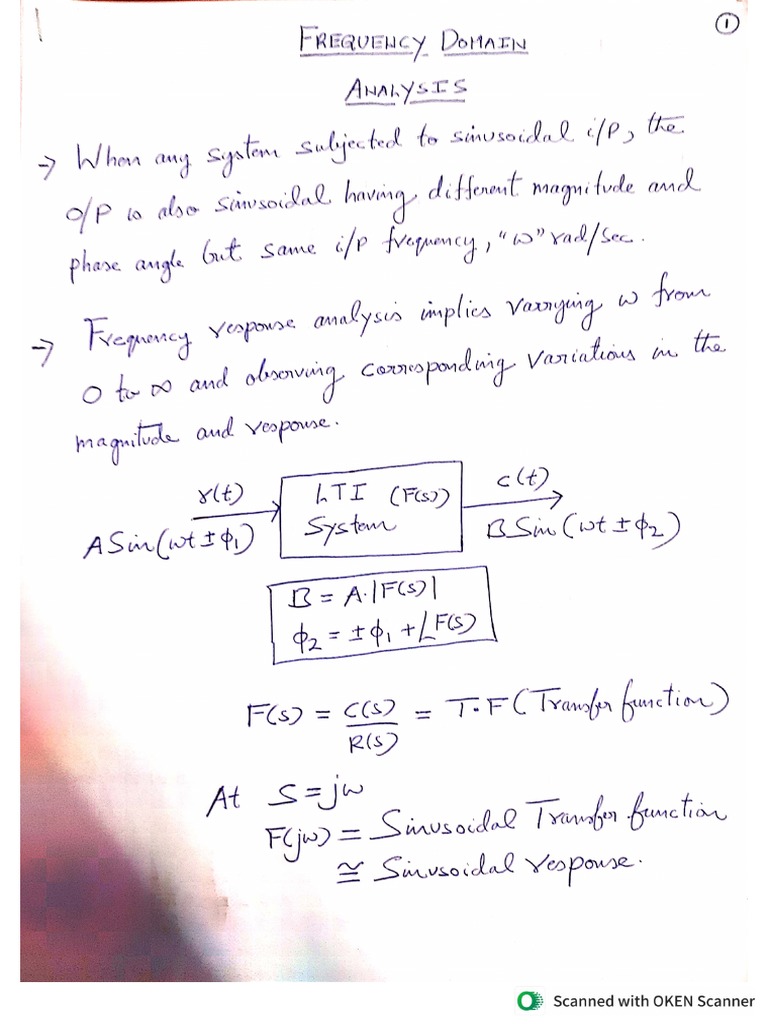 ①
FREQUENCY DOMAIN
ANALYSIS
→ When any system subjected to sinusoidal i/p, the
o/p is also sinusoidal having different magnitude and
phase angle but same i/p frequency, "ω" rad/sec.
→ Frequency response analysis implies varrying ω from
0 to ∞ and observing corresponding variations in the
magnitude and response.
r(t) LTI (F(s)) c(t)
A Sin(ωt ± ϕ₁) System B Sin(ωt ± ϕ₂)
B = A·|F(s)|
ϕ₂ = ±ϕ₁ + ∠F(s)
F(s) = C(s)/R(s) = T·F (Transfer function)
At S = jω
F(jω) = Sinusoidal Transfer function
≅ Sinusoidal response.
Scanned with OKEN Scanner